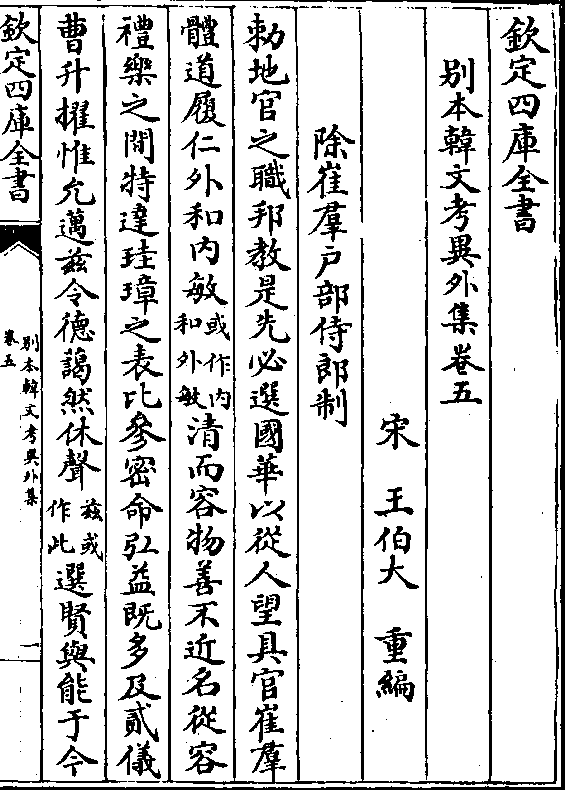 欽定四庫全書
別本韓文考異外集卷五
宋　王伯大　重編
除崔羣戶部侍郎制
勅地官之職邦教是先必選國華以從人望具官崔羣
體道履仁外和內敏或作內和外敏清而容物善不近名從容
禮樂之間特達珪璋之表比參密命弘益既多及貳儀
曹升擢惟允邁兹令德藹然休聲兹或作此選賢與能于今
欽定四庫全書
別本韓文考異外集
卷五
一